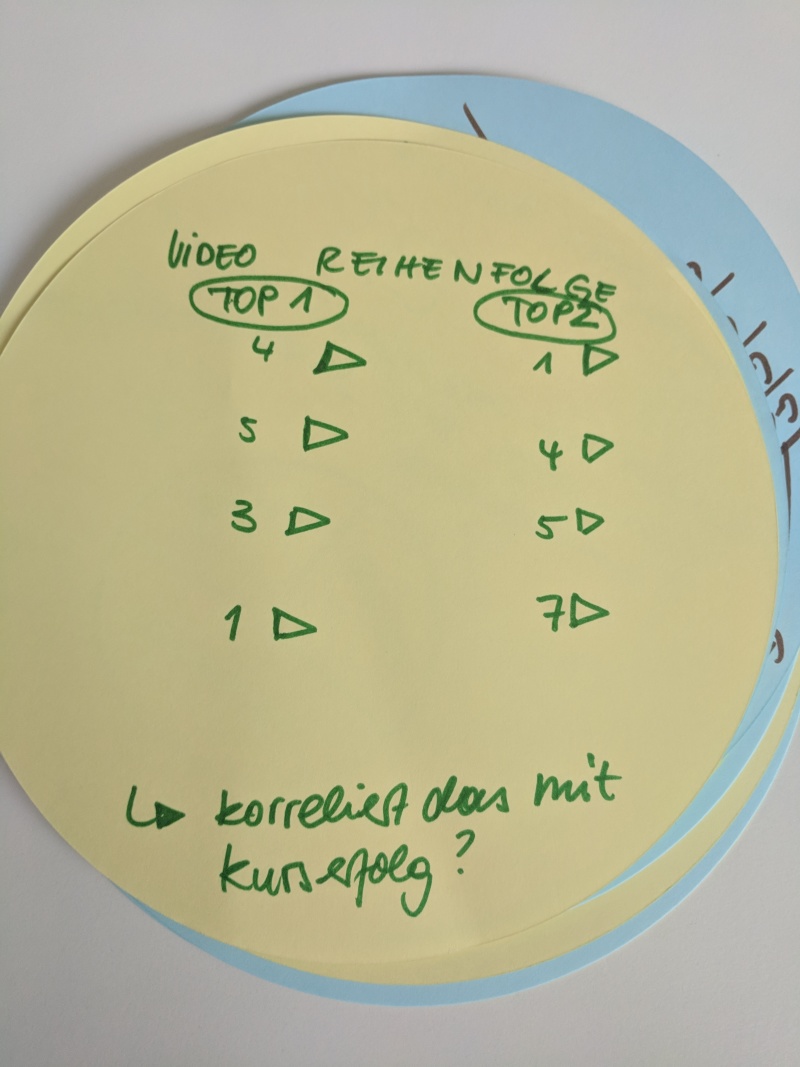 VIDEO REIHENFOLGE
TOP 1 TOP 2
4 ▷ 1 ▷
5 ▷ 4 ▷
3 ▷ 5 ▷
1 ▷ 7 ▷
↳ korreliert das mit
kurserfolg?